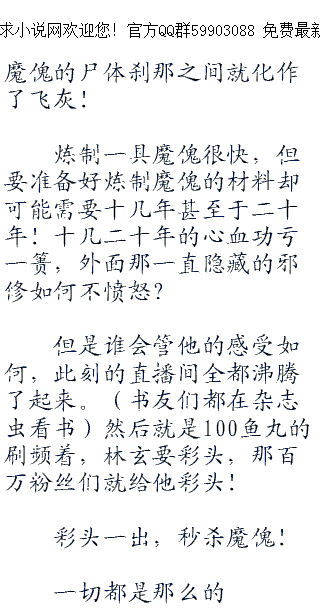 求小说网欢迎您！官方QQ群59903088 免费最新
魔傀的尸体刹那之间就化作
了飞灰！
炼制一具魔傀很快，但
要准备好炼制魔傀的材料却
可能需要十几年甚至于二十
年！十几二十年的心血功亏
一篑，外面那一直隐藏的邪
修如何不愤怒？
但是谁会管他的感受如
何，此刻的直播间全都沸腾
了起来。（书友们都在杂志
虫看书）然后就是100鱼丸的
刷频着，林玄要彩头，那百
万粉丝们就给他彩头！
彩头一出，秒杀魔傀！
一切都是那么的